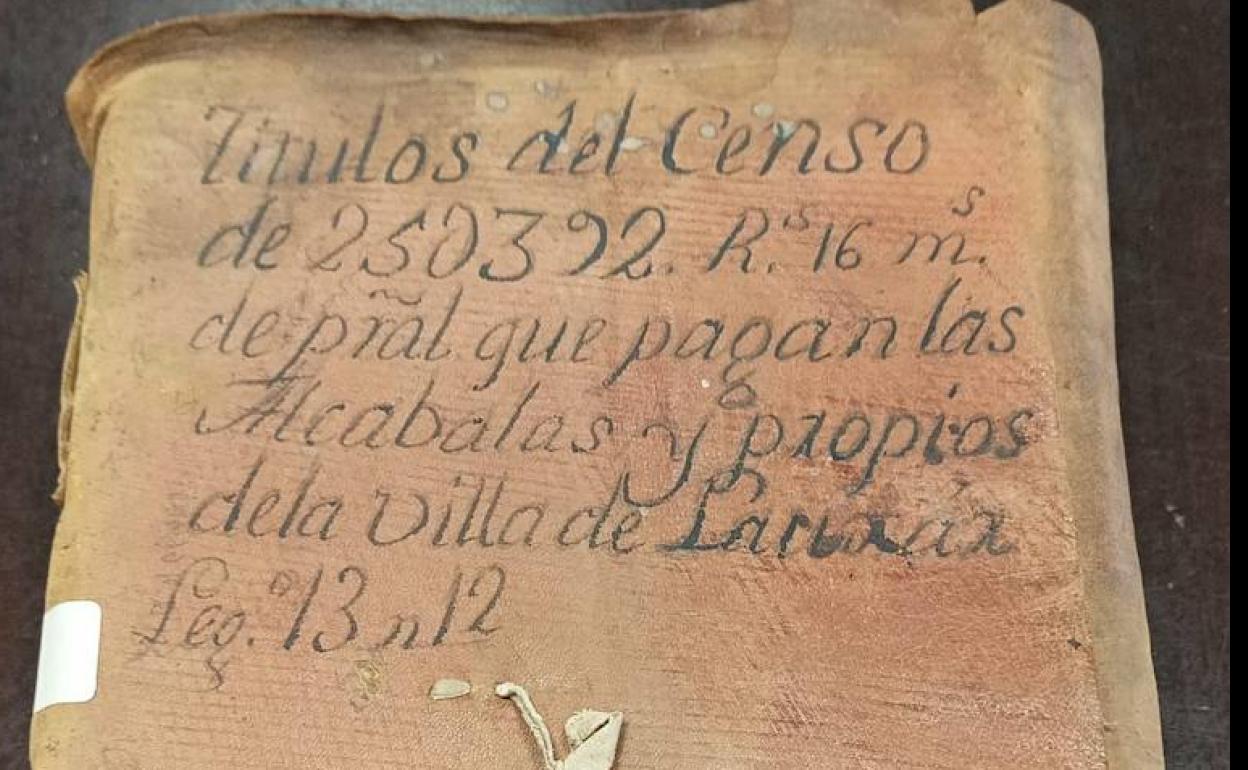 Titulos del Censo
de 250392. R.ˢ 16 m.ˢ
de pñal que pagan las
Alcabalas y propios
dela villa de
Leg.º 13 n 12